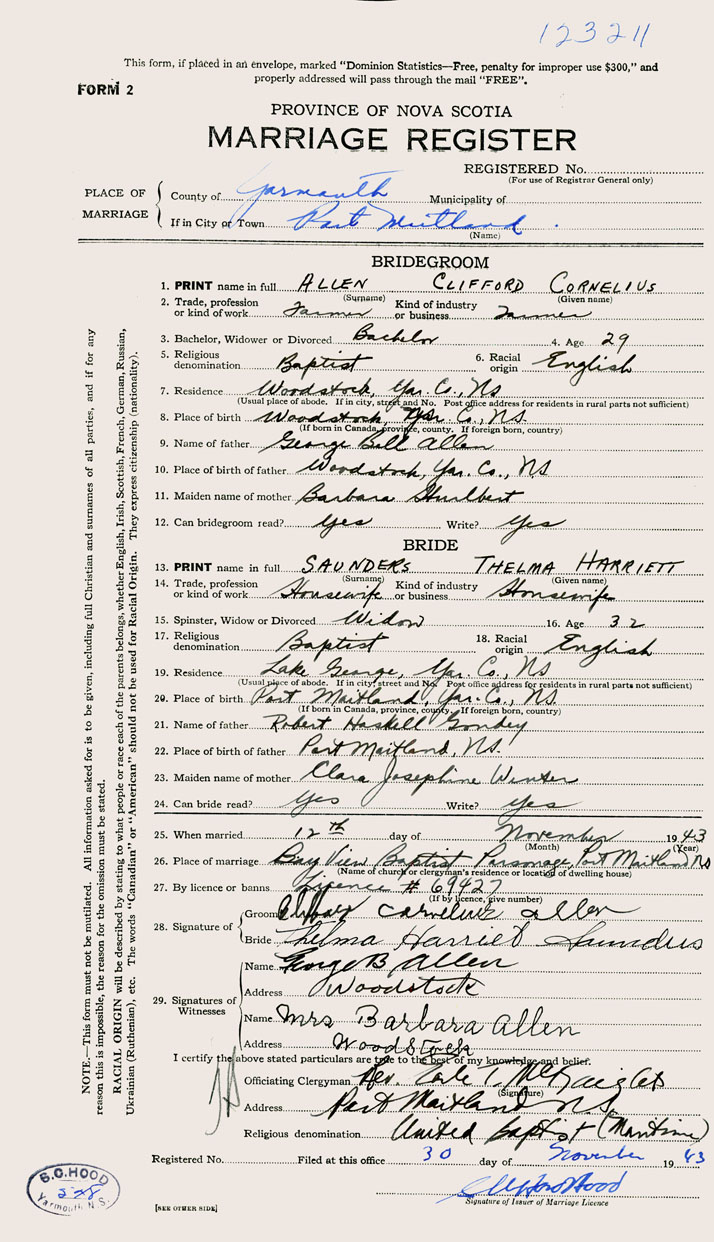 123211
This form, if placed in an envelope, marked “Dominion Statistics—Free, penalty for improper use $300,” and
properly addressed will pass through the mail “FREE”.
FORM 2
PROVINCE OF NOVA SCOTIA
MARRIAGE REGISTER
REGISTERED No.
(For use of Registrar General only)
PLACE OF MARRIAGE
County of Yarmouth Municipality of
If in City or Town Port Maitland.
(Name)
BRIDEGROOM
1. PRINT name in full ALLEN CLIFFORD CORNELIUS
(Surname) (Given name)
2. Trade, profession or kind of work Farmer Kind of industry or business Farmer
3. Bachelor, Widower or Divorced Bachelor 4. Age 29
5. Religious denomination Baptist 6. Racial origin English
7. Residence Woodstock, Yar. Co., NS
(Usual place of abode. If in city, street and No. Post office address for residents in rural parts not sufficient)
8. Place of birth Woodstock, Yar Co., NS.
(If born in Canada, province, county. If foreign born, country)
9. Name of father George Bell Allen
10. Place of birth of father Woodstock, Yar. Co., NS
11. Maiden name of mother Barbara Hurlbert
12. Can bridegroom read? Yes Write? Yes
BRIDE
13. PRINT name in full SAUNDERS THELMA HARRIETT
(Surname) (Given name)
14. Trade, profession or kind of work Housewife Kind of industry or business Housewife
15. Spinster, Widow or Divorced Widow 16. Age 32
17. Religious denomination Baptist 18. Racial origin English
19. Residence Lake George, Yar. Co., NS
(Usual place of abode. If in city, street and No. Post office address for residents in rural parts not sufficient)
20. Place of birth Port Maitland, Yar. Co., NS.
(If born in Canada, province, county. If foreign born, country)
21. Name of father Robert Haskell
22. Place of birth of father Port Maitland, NS.
23. Maiden name of mother Clara Josephine Winter
24. Can bride read? Yes Write? Yes
25. When married 12th day of November 1943
(Month) (Year)
26. Place of marriage Bay View Baptist Parsonage, Port Maitland NS
(Name of church or clergyman's residence or location of dwelling house)
27. By licence or banns Licence # 69427
(If by licence, give number)
28. Signature of
Groom Cornelius Allen
Bride Thelma Harriet Saunders
29. Signatures of Witnesses
Name George B, Allen
Address Woodstock
Name Mrs Barbara Allen
Address Woodstock
I certify the above stated particulars are true to the best of my knowledge and belief.
Officiating Clergyman Rev.
(Signature)
Address Port Maitland N.S.
Religious denomination United Baptist (Maritime)
Registered No. Filed at this office 30 day of November 1943
Signature of Issuer of Marriage Licence
[SEE OTHER SIDE]
S.C. HOOD
328
Yarmouth, N.S.
NOTE.—This form must not be mutilated. All information asked for is to be given, including full Christian and surnames of all parties, and if for any
reason this is impossible, the reason for the omission must be stated.
RACIAL ORIGIN will be described by stating to what people or race each of the parents belongs, whether English, Irish, Scottish, French, German, Russian,
Ukrainian (Ruthenian), etc. The words “Canadian” or “American” should not be used for Racial Origin. They express citizenship (nationality).